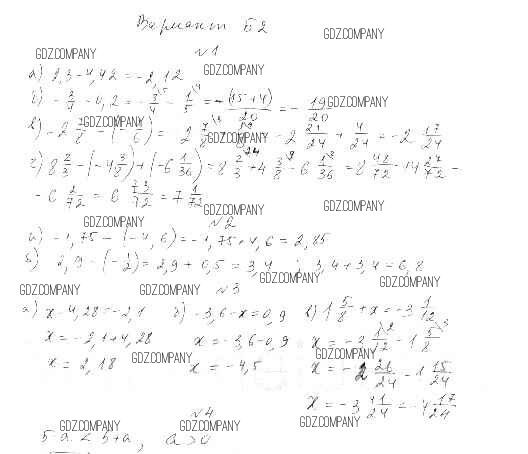 Вариант Б2
GDZ.COMPANY
№1
GDZ.COMPANY
а) 2,3-4,42=-2,12
GDZ.COMPANY
б) -3/4-0,2=-3/4-1/5=-(15+4)/20=-19/20
GDZ.COMPANY
GDZ.COMPANY
GDZ.COMPANY
-2 21/24+4/24=-2 17/24
г) 8 2/3-(-4 3/8)+(-6 1/36)=8 2/3+4 3/8-6 1/36=8 48/72+4 27/72-
-6 2/72=6 73/72=7 1/72
GDZ.COMPANY
GDZ.COMPANY
№2
GDZ.COMPANY
а) -1,75-(-4,6)=-1,75+4,6=2,85
б) 2,9-(-1/2)=2,9+0,5=3,4; 3,4+3,4=6,8
GDZ.COMPANY
GDZ.COMPANY
№3
GDZ.COMPANY
а) x-4,28=-2,1 б) -3,6-x=0,9 в) 1 5/8+x=-3 1/12
x=-2,1+4,28 x=-3,6-0,9 x=-3 1/12-1 5/8
GDZ.COMPANY
GDZ.COMPANY
x=2,18 x=-4,5 x=-2 26/24-1 15/24
x=-3 41/24=-4 17/24
№4
GDZ.COMPANY
GDZ.COMPANY
GDZ.COMPANY
5-a<5+a, a>0